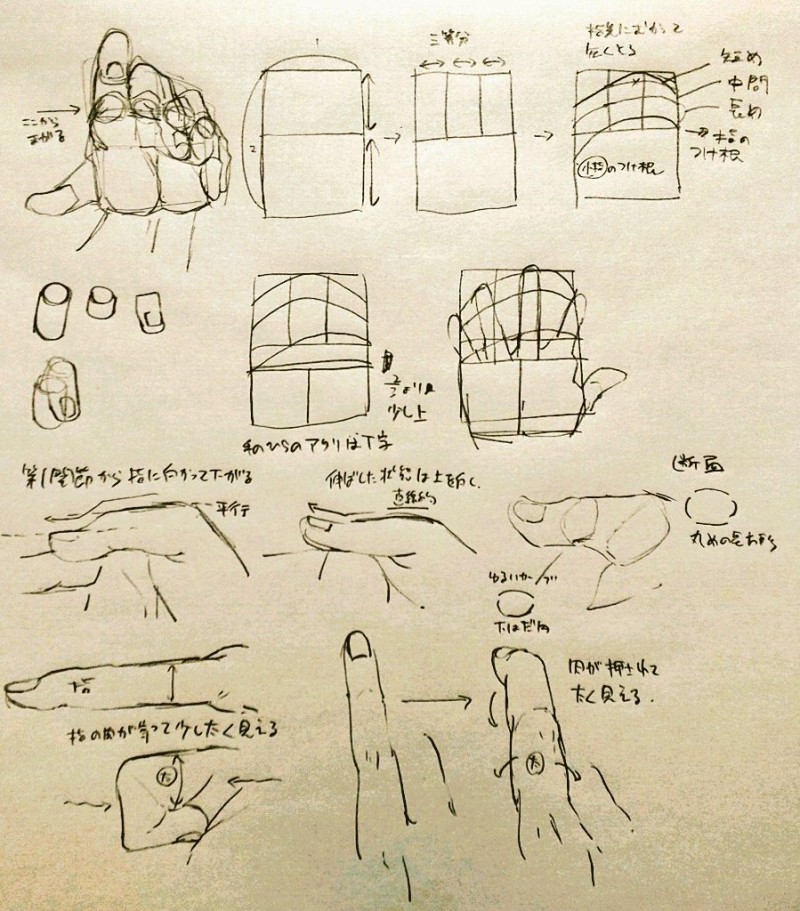 ここから
まがる
1
2
三等分
指先にむかって
広くとる
短め
中間
長め
指の
つけ根
小指のつけ根
2/3より
少し上
手のひらのアタリはT字
第1関節から指に向かって下がる
平行
伸ばした状態は上を向く、
直線的
断面
丸めの長方形
ゆるいカーブ
又はだ円
指
肉が押されて
太く見える。
指の肉が寄って少し太く見える
太
太